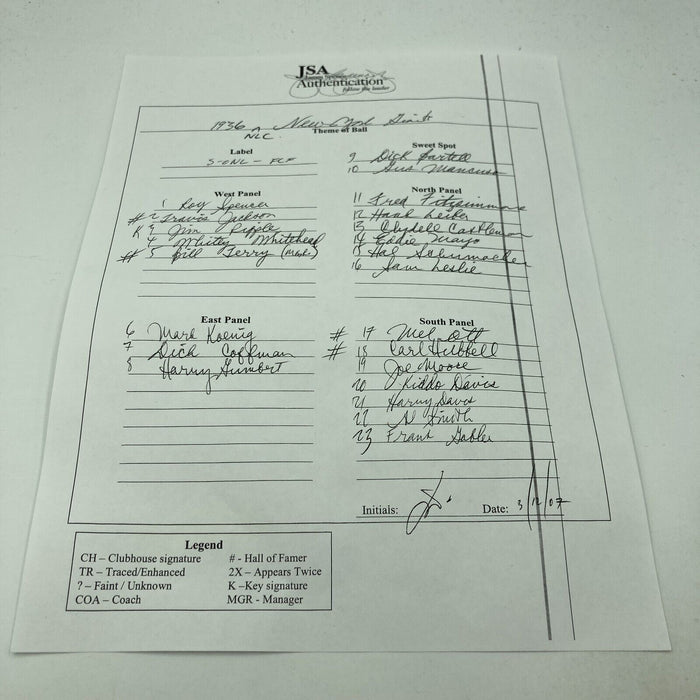 JSA
Authentication
follow the leader
1936 New York Giants
NLC.
Theme of Ball
Label
5-ONL - FCF
Sweet Spot
9 Dick Bartell
10 Gus Mancuso
West Panel
1 Roy Spencer
# 2 Travis Jackson
K 3 Jim Ripple
4 Whitey Whitehead
# 5 Bill Terry
North Panel
11 Fred Fitzsimmons
12 Hank Leiber
13 Clydell Castleman
14 Eddie Mayo
15 Hal Schumacher
16 Sam Leslie
East Panel
6 Mark Koenig
7 Dick Coffman
8 Harry Gumbert
South Panel
# 17 Mel Ott
# 18 Carl Hubbell
19 Joe Moore
20 Kiddo Davis
21 Harry Davis
22 Al Smith
23 Frank Gabler
Initials:
Date: 3/12/07
Legend
CH – Clubhouse signature
# - Hall of Famer
TR – Traced/Enhanced
2X – Appears Twice
? – Faint / Unknown
K –Key signature
COA – Coach
MGR - Manager